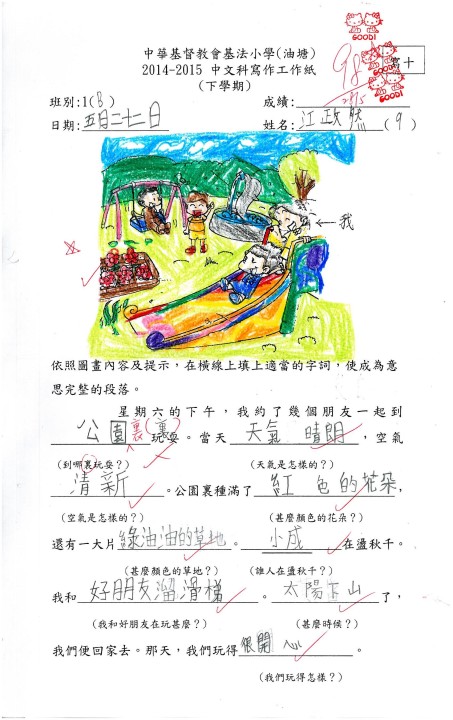 GOODI
中華基督教會基法小學(油塘)
2014-2015 中文科寫作工作紙
(下學期)
98
GOODI
寫十
班別:1(B)
成績:
GOODI
日期:五月二十二日
姓名:江政然(9)
←我
依照圖畫內容及提示，在橫線上填上適當的字詞，使成為意
思完整的段落。
星期六的下午，我約了幾個朋友一起到
公園裏(裏)玩耍。當天天氣晴朗，空氣
(到哪裏玩耍?) (天氣是怎樣的?)
清新。公園裏種滿了紅色的花朵，
(空氣是怎樣的?) (甚麼顏色的花朵?)
還有一大片綠油油的草地。小成在盪秋千。
(甚麼顏色的草地?) (誰人在盪秋千?)
我和好朋友溜滑梯。太陽下山了，
(我和好朋友在玩甚麼?) (甚麼時候?)
我們便回家去。那天，我們玩得很開心。
(我們玩得怎樣?)